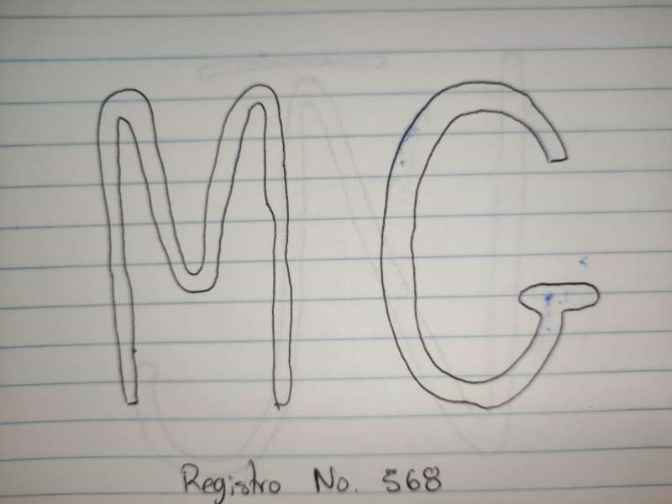 MG
Registro No. 568